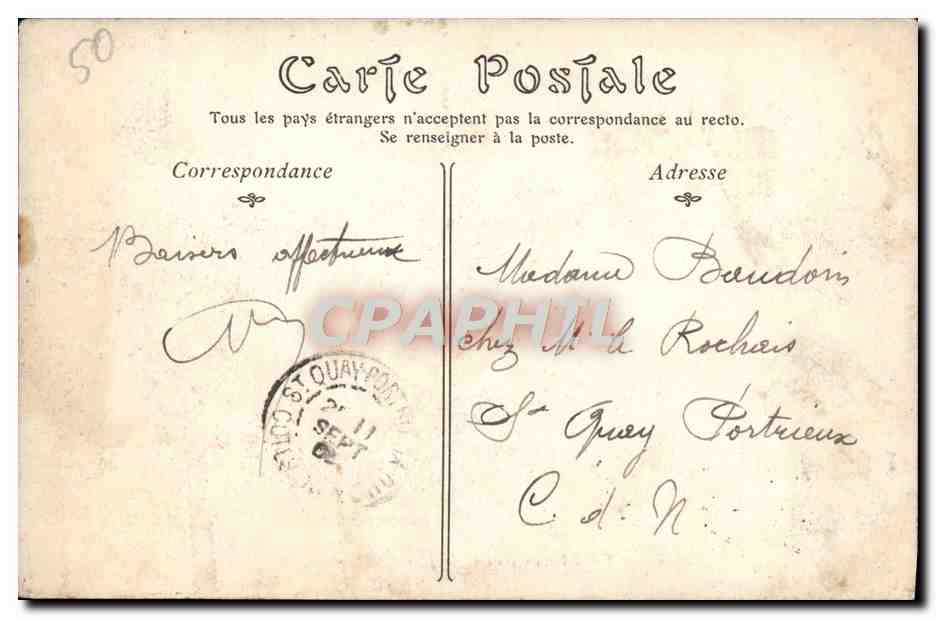 50
Carte Postale
Tous les pays étrangers n'acceptent pas la correspondance au recto.
Se renseigner à la poste.
Correspondance
Adresse
Baisers affectueux
Madame Baudoin
chez M. le Rochais
St Quay Portrieux
C. d. N.
CPAPHIL
ST QUAY-PORTRIEUX
SEPT